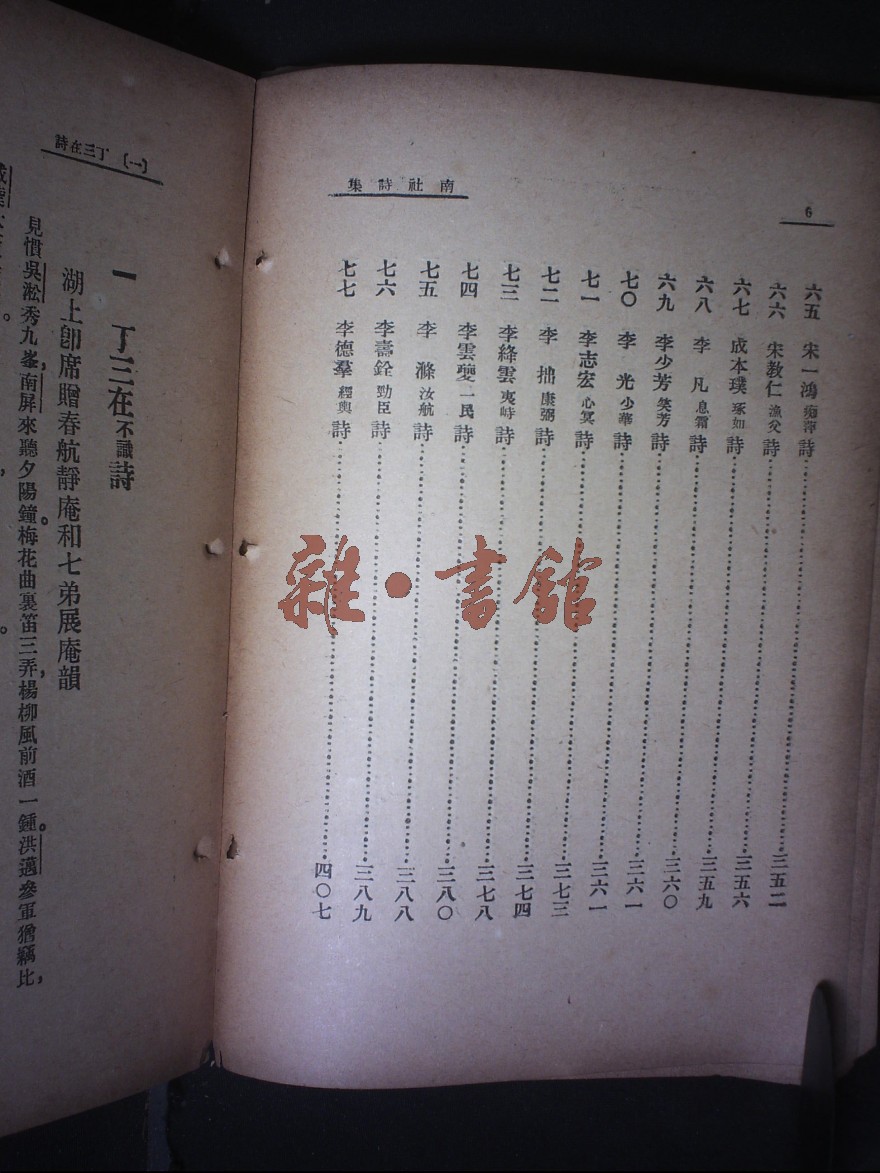 6
南社詩集
六五 宋一鴻 癡萍 詩……三五二
六六 宋教仁 漁父 詩……三五六
六七 成本璞 琢如 詩……三五九
六八 李凡 息霜 詩……三六〇
六九 李少芳 笑芳 詩……三六一
七〇 李光 少華 詩……三六一
七一 李志宏 心冥 詩……三七三
七二 李拙 康弼 詩……三七四
七三 李絳雲 夷峙 詩……三七八
七四 李雲夔 一民 詩……三八〇
七五 李滌 汝航 詩……三八八
七六 李壽銓 勁臣 詩……三八九
七七 李德羣 經輿 詩……四〇七
(一) 丁三在詩
一 丁三在 不識 詩
湖上卽席贈春航靜庵和七弟展庵韻
見慣吳淞秀九峯,南屏來聽夕陽鐘。梅花曲裏笛三弄,楊柳風前酒一鍾。洪邁參軍猶竊比,